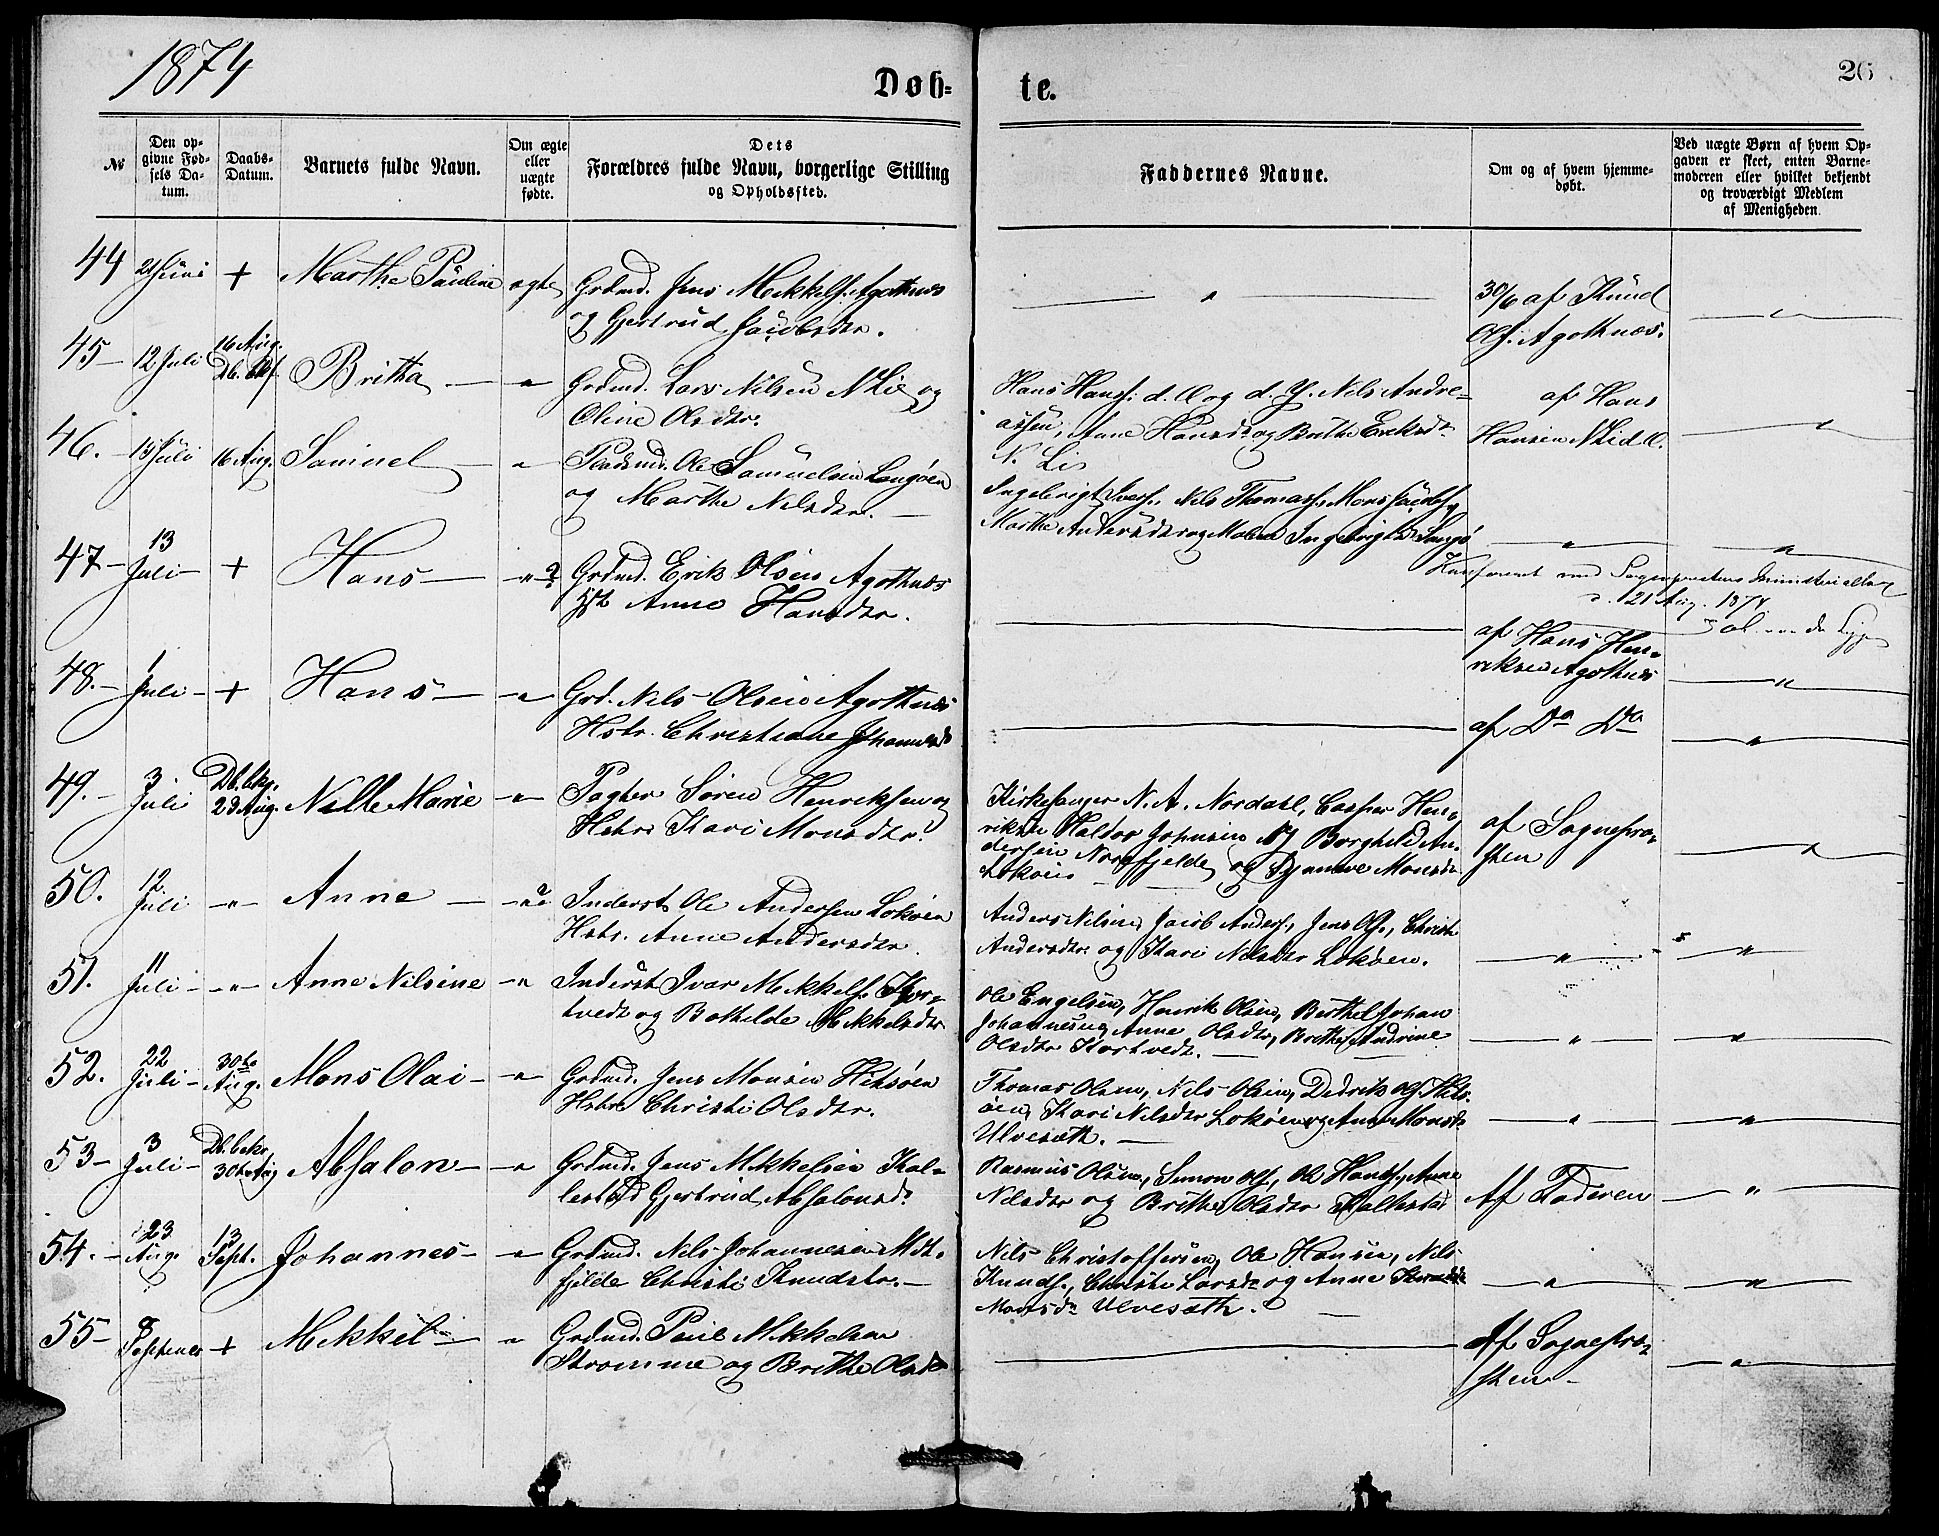 1874
Døb-
te.
26
№
Den op-
givne Fød-
sels Da-
tum.
Daabs-
Datum.
Barnets fulde Navn.
Om ægte
eller
uægte
fødte.
Dets
Forældres fulde Navn, borgerlige Stilling
og Opholdssted.
Faddernes Navne.
Om og af hvem hjemme-
døbt.
Ved uægte Børn af hvem Op-
gaven er skeet, enten Barne-
moderen eller hvilket bekjendt
og troværdigt Medlem
af Menigheden.
44 21 Juni + Marthe Pauline ægte Grdmd. Jens Mikkels. Agothnæs
og Gjertrud Jacobsdtr.
30/6 af Knud
Ols. Agothnæs.
45 – 12 Juli 16 Aug.
Db. Bkf. Britha – " Grdmd. Lars Nilsen N Lie og
Oline Olsdtr.
Hans Hanss. d. Æ og d. Y. Nils Andre-
assen, Anne Hansdr og Brithe Eriksdr
N. Lie
af Hans
Hansen N Lid Æ.
46. – 15 Juli 16 Aug. Samuel – " Pladsmd. Ole Samuelsen Langøen
og Marthe Nilsdtr. –
Ingebrigt Ivers., Nils Thomass. Mons Jacobs.
Marthe Andersdtr og Malene Ingebrigtsdr Langø
47 – 13
Juli – + Hans – " ? Grdmd. Erik Olsen Agothnæs
Anne Hansdtr.
Konfereret med Sogneprestens Ministerialbog
d. 21 Aug. 1874
af Hans Hen-
riksen Agothnæs
48. – 1
Juli – + Hans – " Grd. Nils Olsen Agothnæs
Hstr. Christiane Johannesd
af Do Do
49. – 3
Juli Db. bkr.
23 Aug. Nille Marie – " Pagter Søren Henriksen og
Hstr. Kari Monsdtr.
Kirkesanger N. A. Nordahl, Casper Hen-
riksen Haldor Johnsen Borghild An-
dersen Norefjelde og Synneve Monsdr
Lokøen
af Sognepre-
sten
50. 12
Juli – " – Anne – " ? Inderst Ole Andersen Lokøen
Hstr. Anne Andersdtr.
Anders Nilsen, Jacob Anders., Jens Ols., Christi
Andersdtr. og Kari Nilsdtr Lokøen.
51. 11
Juli – " – Anne Nilsine – " Inderst Ivar Mikkels. Kor-
tvedt og Bothilde Mikkelsdtr
Ole Engelsen, Henrik Olsen, Berthel Johan
Johannesen, Anne Olsdtr, Brithe Andrine
Olsdtr Kortvedt. –
52. 22
Juli – 30te
Aug. Mons Olai – " Grdmd. Jens Monsen Hitsøen
Hstr Christi Olsdtr.
Thomas Olsen, Nils Olsen, Didrik Ols. Hits-
øen, Kari Nilsdtr Lokøen og Anne Monsdr
Ulvesæth. –
53 – 3
Juli – Db. bekr.
30te Aug Absalon – " Grdmd. Jens Mikkelsen Kal-
lestad Gjertrud Absalonsdr
Rasmus Olsen, Simon Ols., Ole Hanss., Anne
Nilsdtr og Brithe Olsdtr Kallestad
Af Faderen
54. – 23
Aug. 13
Sept. Johannes – " Grdmd. Nils Johannesen Mid-
fjelde Christi Knudstr. –
Nils Christoffersen, Ole Hansen, Nils
Knuds., Christi Larsdr og Anne
Monsdr Ulvesæth.
55 – 8
Septemr + Mikkel – " Grdmd. Paul Mikkelsen
Stromme og Brithe Olsdr
Af Sognepre-
sten –